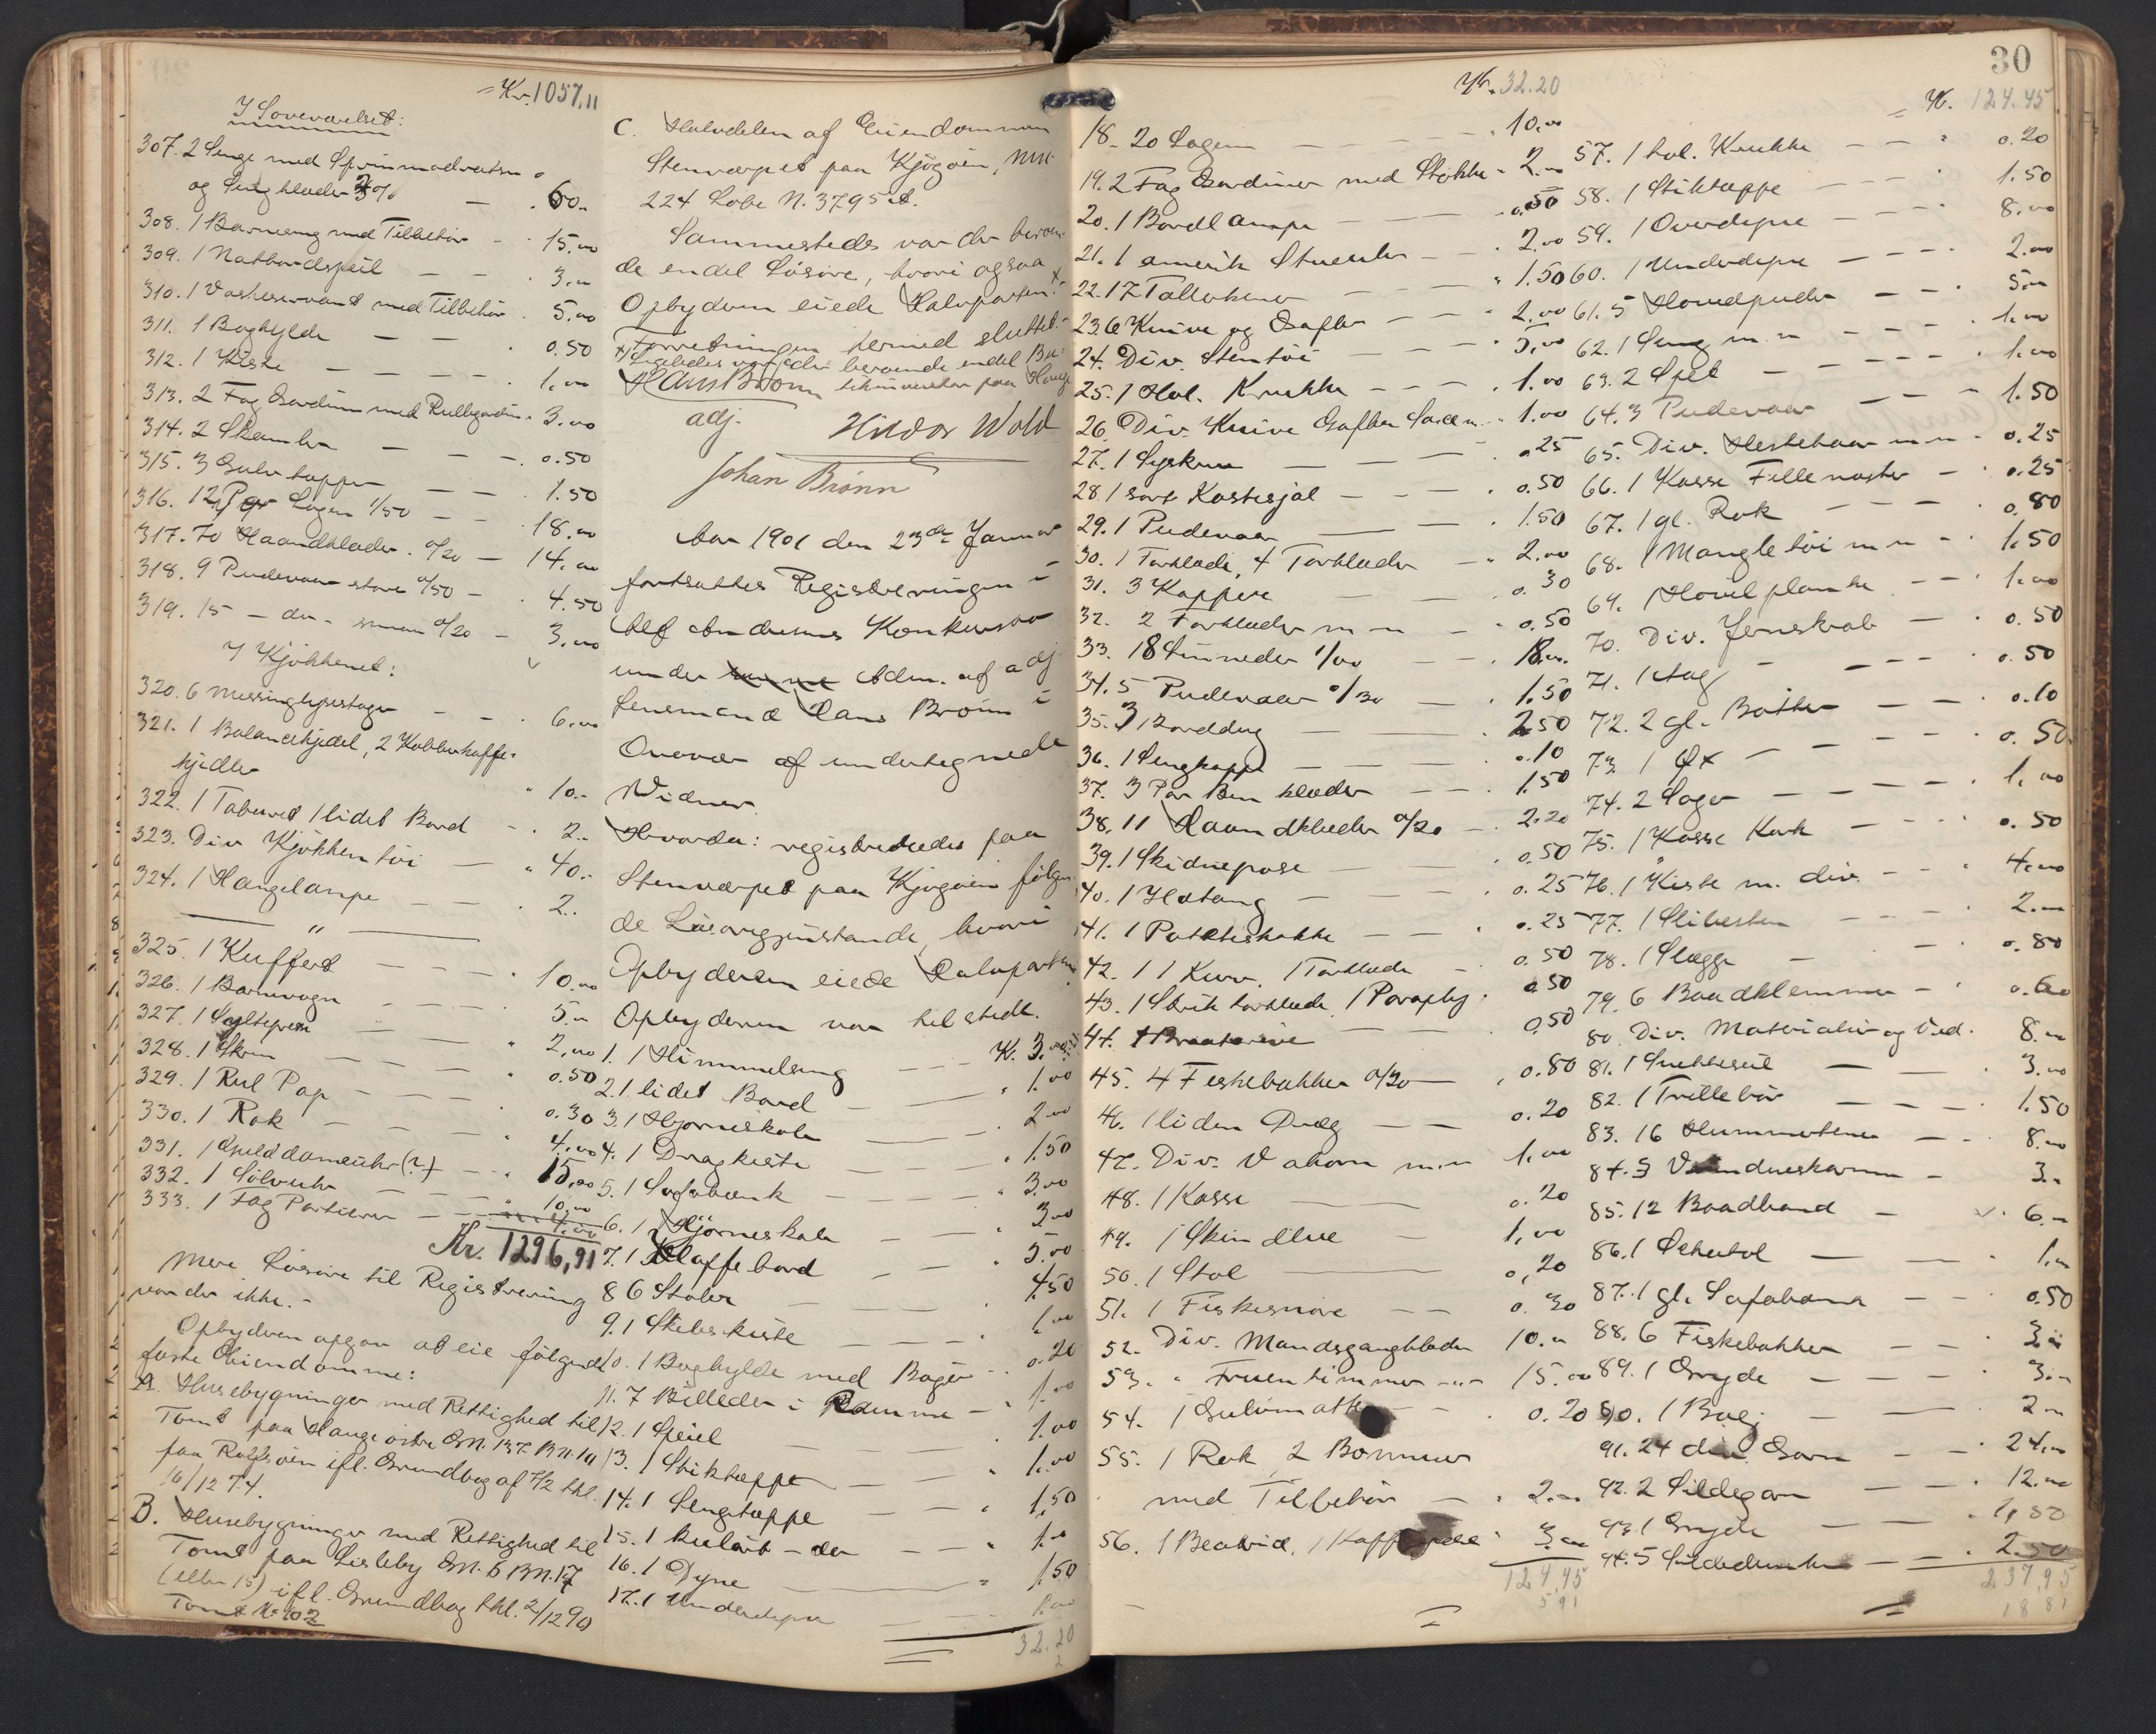 = Kr. 1057,11
I Soveværelset:
307. 2 Senge med Springmadratser
og Sengklæder — . 60.-
308. 1 Barneseng med Tilbehör - . 15.00
309. 1 Natbordspeil — — . 3.00
310. 1 Vaskeservant med Tilbehör . 5.00
311. 1 Boghylde — — . 0.50
312. 1 Kiste — — — . 1.00
313. 2 Fag Gardiner med Rullegardin . 3.00
314. 2 Skamler — — . 0.50
315. 3 Gulvtepper — — . 1.50
316. 12 Par Lagen 1/50 — . 18.00
317. 70 Haandklæder 0/20 — 14.00
318. 9 Pudevaar store 0/50 — . 4.50
319. 15 — do - smaa 0/20 — 3.00
I Kjökkenet:
320. 6 Messinglysestager — . 6.00
321. 1 Balancekjedel, 2 Kobberkaffe-
kjedler " 10.-
322. 1 Taburet 1 lidet Bord - . 2..
323. Div Kjökkentöi — " 40.-
324. 1 Hængelampe — — . 2..
— " —
325. 1 Kuffert — — — " 10.00
326. 1 Barnevogn — — — 5.00
327. 1 Syltepresse — " 2.00
328. 1 Skrin — — — . 0.50
329. 1 Rul Pap — — — 0.30
330. 1 Rok — — — " 4.00
331. 1 Guld dameuhr (?) — . 15.00
332. 1 Sölvuhr — — — " 10.00
333. 1 Fag Portierer — — 4.00
Kr. 1296,91
Mere Lösöre til Registrering
var der ikke. -
Opbyderen opgav at eie følgende
faste Eiendomme:
A. Husebygninger med Rettighed til
Tomt paa Hauge östre GN. 137 BN. 10
paa Rolfsöen ifl. Grundbog af 7/2 thl.
16/12 74.
B. Husebygninger med Rettighed til
Tomt paa Lisleby GN. 6 BN. 17
(eller 15) ifl. Grundbog thl. 2/12 90
Tomt No 402
C. Halvdelen af Eiendommen
Stenværpet paa Kjögöen, MN.
224 Löbe N. 3795 st.
Sammesteds var der beroen-
de endel Lösöre, hvori ogsaa
Opbyderen eiede Halvparten. x
Forretningen hermed sluttet.
x) Ligeledes var der beroende endel
Hans Brönn paa Hauge
adj. Hildor Wold
Johan Brönn
Aar 1901 den 23de Januar
fortsattes Registreringen i
Alf Andersens Konkursbo
under Adm. af adj.
Lensmand Hans Brönn i
Overvær af undertegnede
Vidner.
Hvorda: registreredes paa
Stenværpet paa Kjögöen følgen
de Lösöregjenstande, hvori
Opbyderen eiede Halvparten.
Opbyderen var tilstede.
1. 1 Himmelseng — — Kr. 3.00
2. 1 lidet Bord — — " 1.00
3. 1 Hjörneskab — — . 2.00
4. 1 Dragkiste — — " 1.50
5. 1 Sofabænk — — " 3.00
6. 1 Hjörneskab — — " 3.00
7. 1 Klaffebord — — " 5.00
8. 6 Stoler — — . 4.50
9. 1 Skibskiste — — . 1.00
10. 1 Boghylde med Böger — . 0.20
11. 7 Billeder i Ramme — " 1.00
12. 1 Speil — — . 1.00
13. 1 Stiktæppe — — " 1.00
14. 1 Sengetæppe — — " 1.50
15. 1 kulört — do — — " 1.00
16. 1 Dyne — — " 1.50
17. 1 Underdyne — — 1.00
32.20
2
30
Kr. 32.20
18. 20 Lagen — — . 10.00
19. 2 Fag Gardiner med Stokke - 2.00
20. 1 Bordlampe — — . 0.50
21. 1 amerik Stueuhr — — . 2.00
22. 17 Tallerkener — — " 1.50
23. 6 Knive og Gafler — — . 2.00
24. Div. Stentöi — — . 5.00
25. 1 Hol. Krukke — — . 1.00
26. Div. Knive Gafler — . 1.00
27. 1 Syskrin — — . 0.25
28. 1 sort Kastesjal — — . 0.50
29. 1 Pudevaar — — . 1.50
30. 1 Forklæde, 4 Forklæder — . 2.00
31. 3 Kapper — — 0.30
32. 2 Forklæder m m — . 0.50
33. 18 Linneder 1/00 — . 18.00
34. 5 Pudevaar 0/30 — 1.50
35. 3 Borddug — — . 2.50
36. 1 Sengkappe — — . 0.10
37. 3 Par Benklæder — — . 1.50
38. 11 Haandklæder 0/20 — . 2.20
39. 1 Skidnepose — — . 0.50
40. 1 Ildtang — — . 0.25
41. 1 Potetishakke — — . 0.25
42. 1 1 Kurv. 1 Forklæde — 0.50
43. 1 Strik forklæde, 1 Paraply . 0.50
44. 1 — 0.50
45. 4 Fiskebakker 0/20 — , 0.80
46. 1 liden Dræg — — 0.20
47. Div. m.m 1.00
48. 1 Kasse — 0.20
49. 1 Skin — 1,00
50. 1 Stol — 0,20
51. 1 Fiskesnöre — — 0.30
52. Div. Mandsgangklæder 10.00
53. " Fruentimmer -"- 15.00
54. 1 Gulvmatte — . 0.20
55. 1 Rok 2
med Tilbehör — . 2.00
56. 1 3.00
124,45
5 91
Kr. 124.45
57. 1 hol. Krukke — — " 0.20
58. 1 Stiktæppe — — . 1.50
59. 1 Overdyne — — . 8.00
60. 1 Underdyne — — . 2.00
61. 5 Hovedpuder — — . 5.00
62. 1 Seng m. m — — . 1.00
63. 2 Spet — — . 1.00
64. 3 Pudevaar — — 1.50
65. Div. Hestehaar m m . 0.25
66. 1 Kasse — . 0.25
67. 1 gl. Rok — — . 0.80
68. 1 Mangletöi m m — . 1.50
69. 1 Hövelplanke — — . 1.00
70. Div. Jernskrab — . 0.50
71. 1 Sag — — . 0.50
72. 2 gl. Bötter — — 0.10
73. 1 Öx — — . 0.50
74. 2 Sager — — . 1.00
75. 1 Kasse Kork — — . 0.50
76. 1 Kiste m. div. — . 4.00
77. 1 Slibesten — — . 2.00
78. 1 Slægge — . — . 0.80
79. 6 Baadklemmer — . 0.60
80. Div. Materialier og Ved. 8.00
81. 1 — 3.00
82. 1 Trillebör — — 1.50
83. 16 Hummertener — . 8.00
84. 3 Vindueskarmer — 3..
85. 12 Baadbaand — . 6.-
86. 1 — 1.00
87. 1 gl. Sofabænk — — 0.50
88. 6 Fiskebakker — — 3.00
89. 1 Gryde — — . 3.00
90. 1 Balje — 2.00
91. 24 Garn — . 24.00
92. 2 Sildegarn — — . 12.00
93. 1 Gryde — — . 1,50
94. 5 — — . 2.50
237,95
18 81